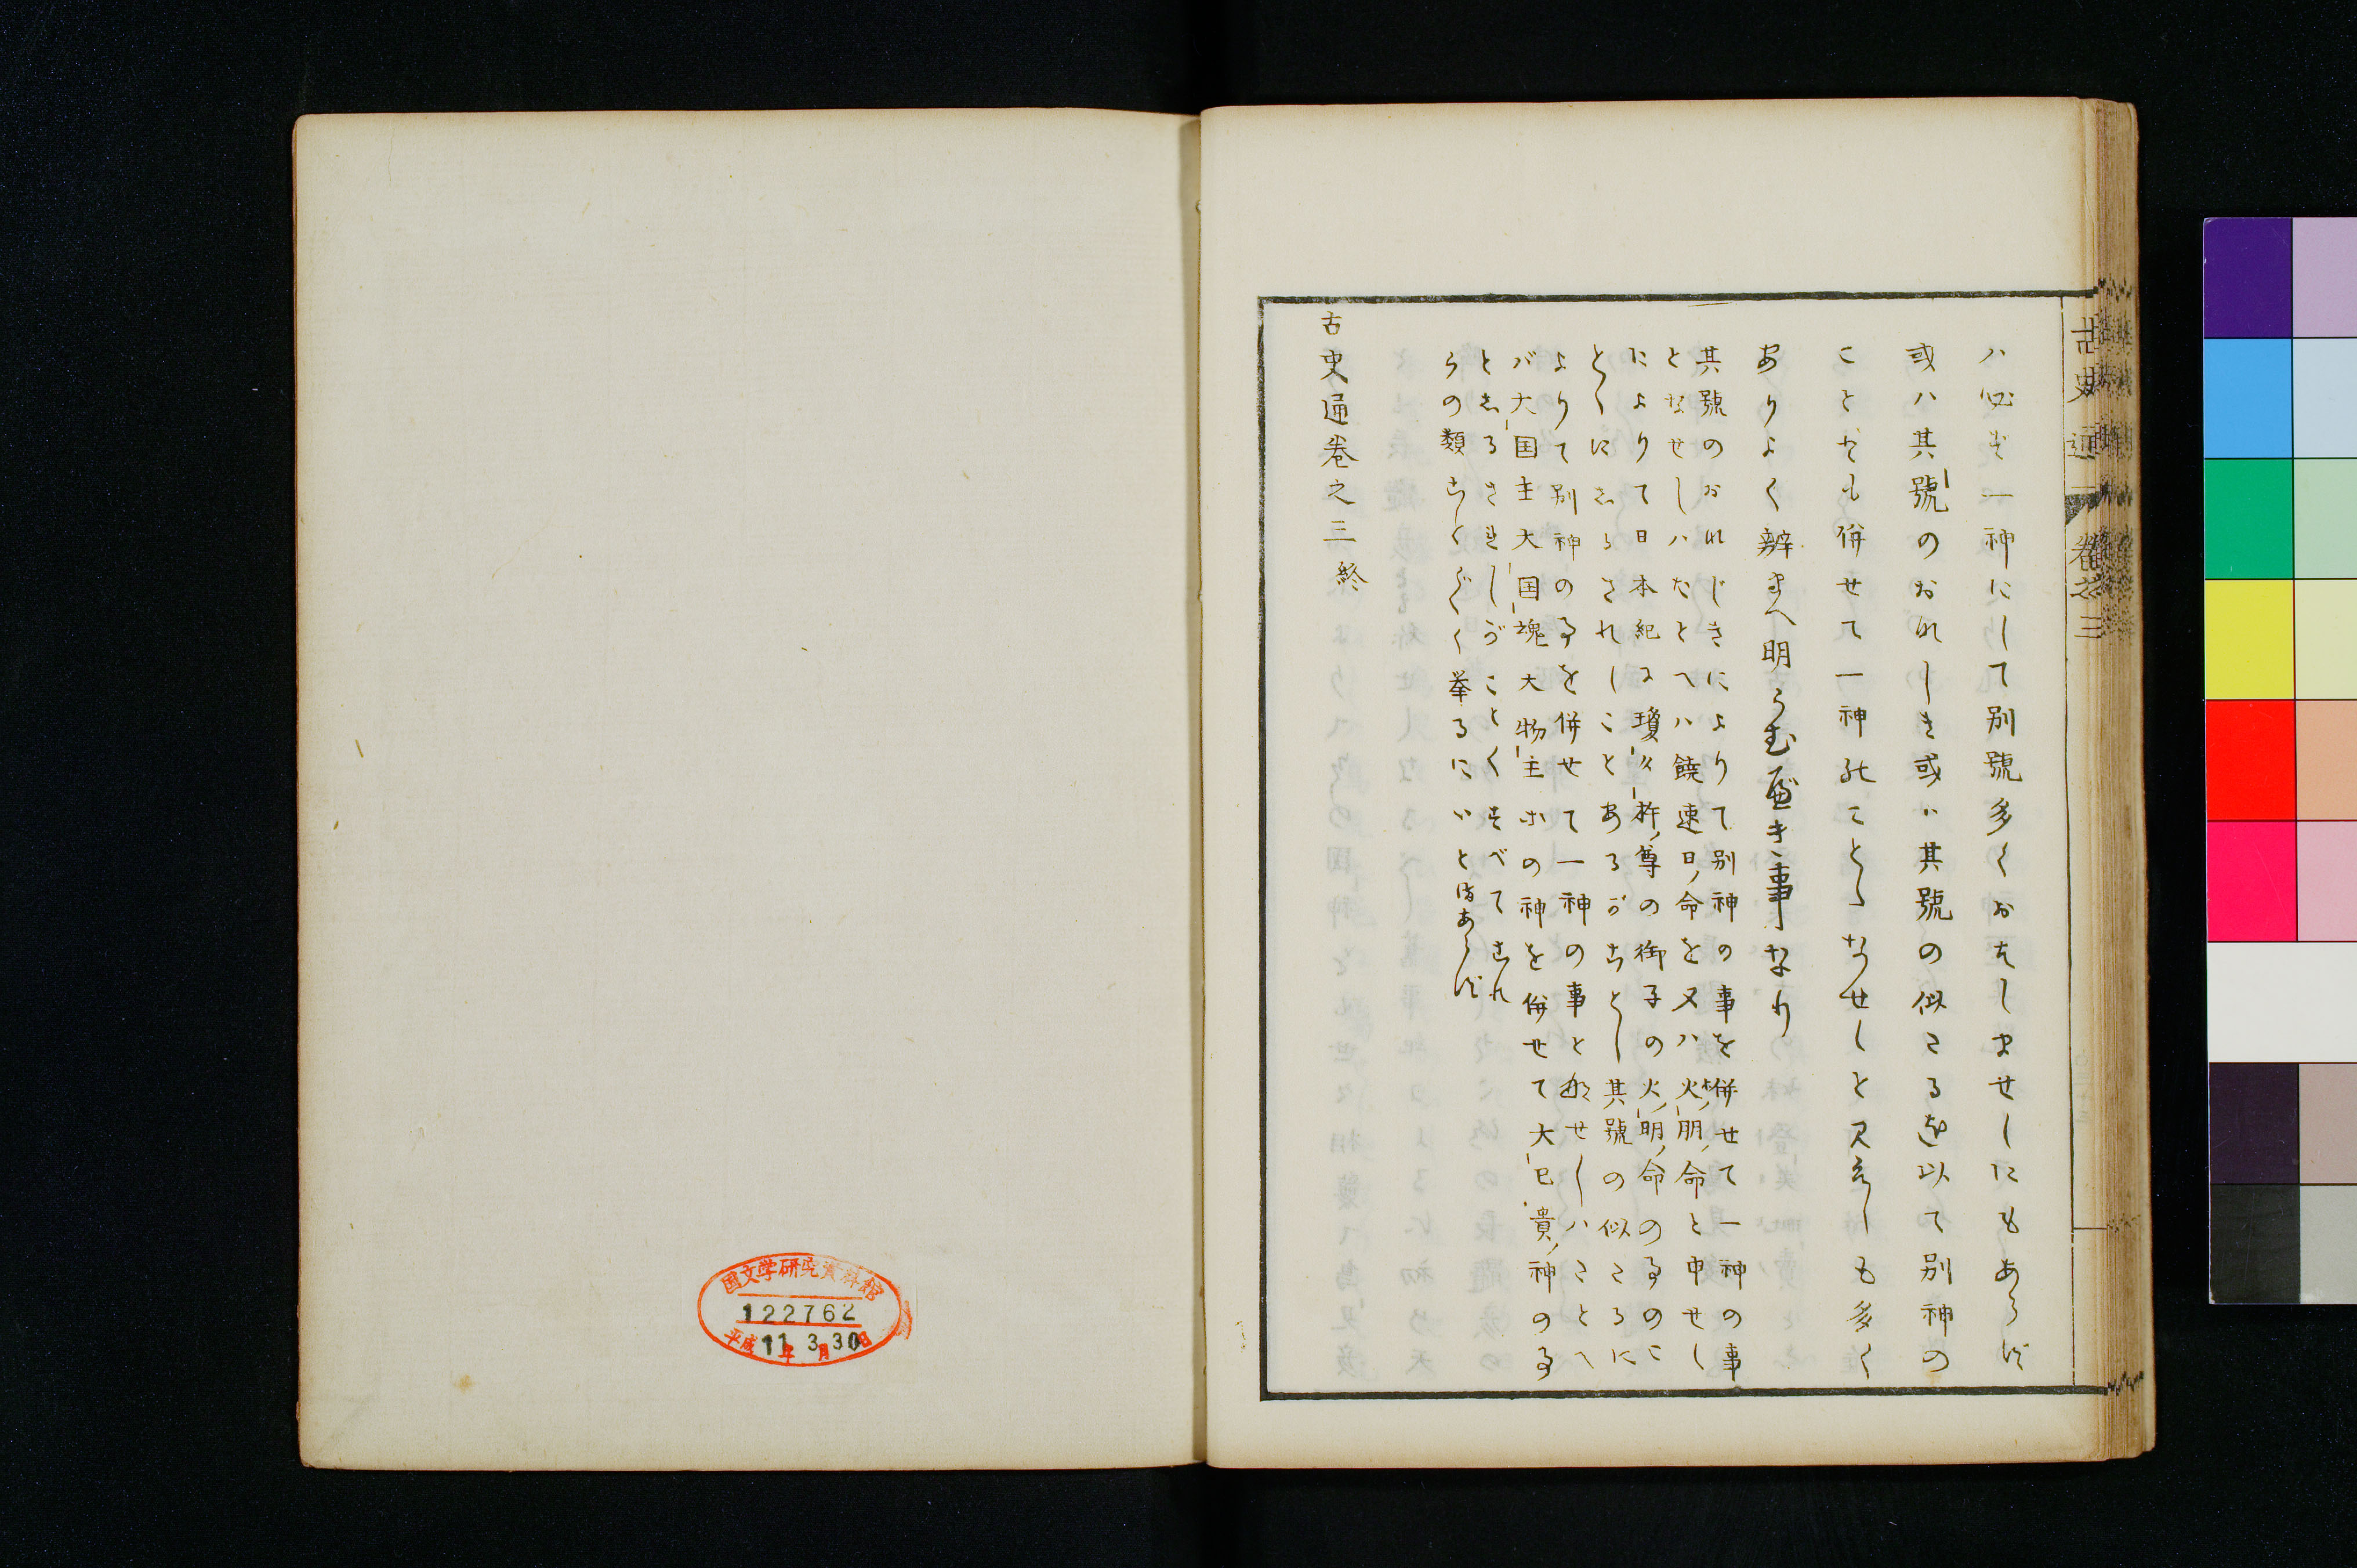 古史通 巻之三
ハ必ず一神にして別號多くおはしませしにもあらず
或ハ其號のおなしき或ハ其號の似たるを以て別神の
ことども併せて一神のことゝなせしと見えしも多く
ありよく辨まへ明らむべき事なり
其號のおなじきによりて別神の事を併せて一神の事
となせしハたとへハ饒速日命を又ハ火明命と申せし
によりて日本紀に瓊々杵尊の御子の火明命の事のこ
とくにしるされしことあるがごとし其號の似たるに
よりて別神の事を併せて一神の事と成せしハたとへ
バ大国主大国魂大物主等の神を併せて大己貴神の事
としるされしがことくすべてこれ
らの類ことごとく挙るにいとまあらず
古史通巻之三終
国文学研究資料館
122762
平成11年3月30日